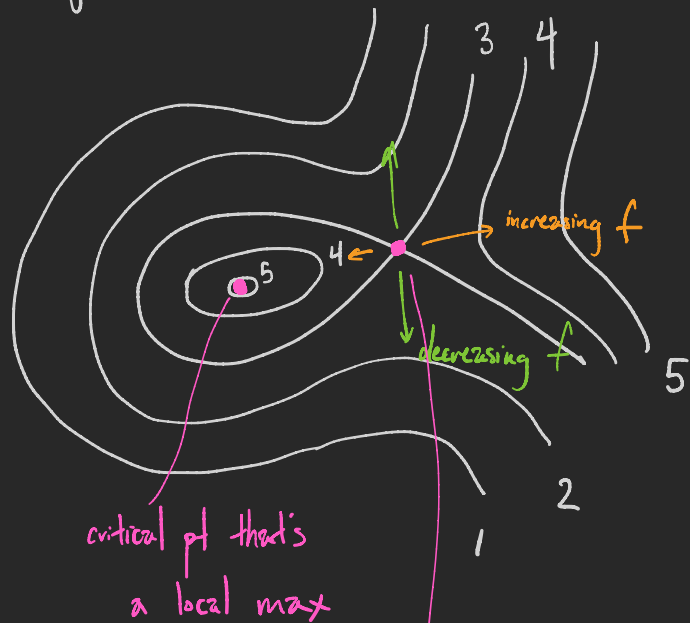 3
4
increasing f
4
5
decreasing f
5
2
critical pt that's
1
a local max